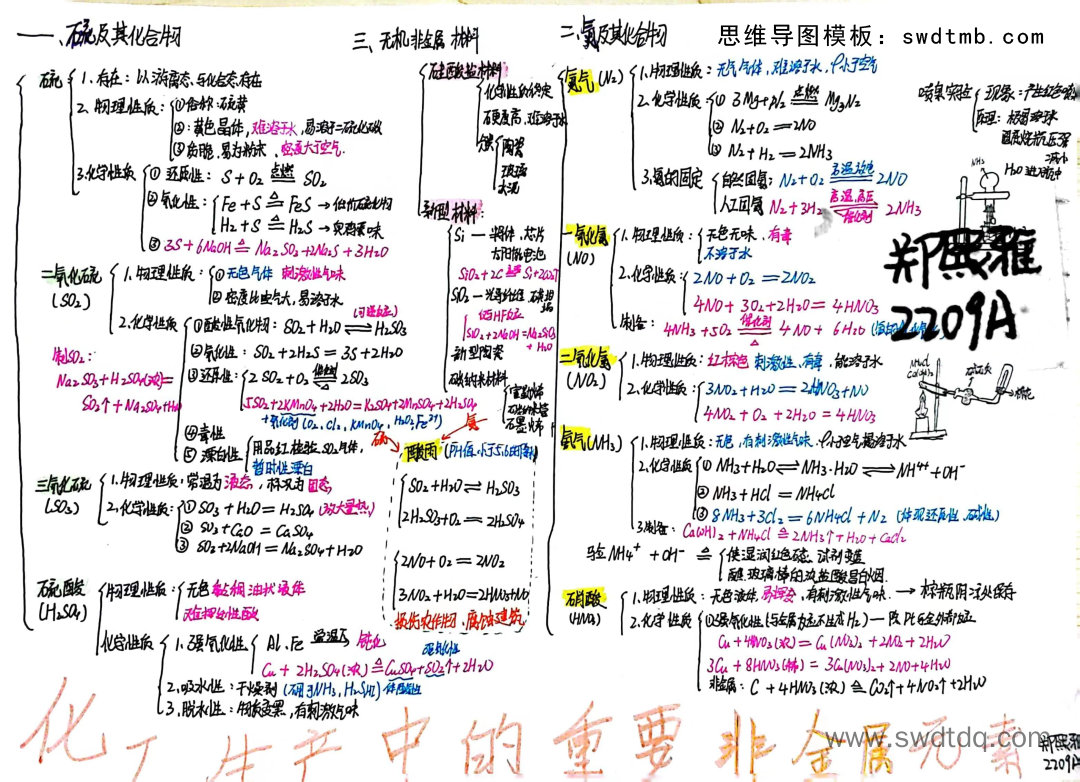 一、硫及其化合物
硫
1.存在：以游离态、化合态存在
2.物理性质：①俗称：硫黄
②：黄色晶体，难溶于水，易溶于二硫化碳
③质脆，易为粉末，密度大于空气
3.化学性质
①还原性：S+O2 点燃 SO2
②氧化性：Fe+S △ FeS
H2+S △ H2S
③3S+6NaOH △ Na2SO3+2Na2S+3H2O
二氧化硫
(SO2)
1.物理性质：①无色气体 刺激性气味
②密度比空气大，易溶于水
2.化学性质
①酸性氧化物：SO2+H2O ⇌ H2SO3
(可逆反应)
②氧化性：SO2+2H2S=3S+2H2O
③还原性：2SO2+O2 催化剂 △ 2SO3
5SO2+2KMnO4+2H2O=K2SO4+2MnSO4+2H2SO4
④毒性
⑤漂白性
用品红检验SO2气体，
暂时性漂白
制SO2：
Na2SO3+H2SO4(浓)=
SO2↑+Na2SO4+H2O
三氧化硫
(SO3)
1.物理性质：常温为液态，标况为固态
2.化学性质：①SO3+H2O=H2SO4(放大量热)
②SO3+CaO=CaSO4
③SO3+2NaOH=Na2SO4+H2O
硫酸
(H2SO4)
物理性质：无色粘稠油状液体
难挥发性酸
化学性质
1.强氧化性
Al、Fe 常温下 钝化
Cu+2H2SO4(浓) △ CuSO4+SO2↑+2H2O
强氧化性
体现酸性
2.吸水性：干燥剂(不用于NH3、H2S、HI)
3.脱水性：物质变黑，有刺激气味
三、无机非金属材料
硅酸盐材料
化学性质稳定
硬度高，难溶于水
陶瓷
玻璃
水泥
新型材料：
Si—半导体，芯片
太阳能电池
SiO2+2C 高温 Si+2CO↑
SiO2—光导纤维
SiO2+2NaOH=Na2SiO3
+H2O
新型陶瓷
碳纳米材料
富勒烯
碳纳米管
石墨烯
硫
氮
酸雨(pH值小于5.6的降水)
SO2+H2O ⇌ H2SO3
2H2SO3+O2=2H2SO4
2NO+O2=2NO2
3NO2+H2O=2HNO3+NO
损伤农作物，腐蚀建筑
二、氮及其化合物
思维导图模板：swdtmb.com
氮气(N2)
1.物理性质：无气气体，难溶于水，ρ小于空气
2.化学性质
①3Mg+N2 点燃 Mg3N2
②N2+O2=2NO
③N2+H2=2NH3
3.氮的固定
自然固氮：N2+O2 高温放电 2NO
人工固氮 N2+3H2 高温、高压 催化剂 2NH3
喷泉实验
现象：产生红色喷泉
H2O进入瓶中
NH3
一氧化氮
(NO)
1.物理性质：无色无味、有毒
不溶于水
2.化学性质：2NO+O2=2NO2
4NO+3O2+2H2O=4HNO3
制备：4NH3+5O2 催化剂 △ 4NO+6H2O
郑熙雅
2209A
二氧化氮
(NO2)
1.物理性质：红棕色 刺激性、有毒，能溶于水
2.化学性质：3NO2+H2O=2HNO3+NO
4NO2+O2+2H2O=4HNO3
NH4Cl
Ca(OH)2
棉花
氨气(NH3)
1.物理性质：无色，有刺激性气味，ρ小于空气易溶于水
2.化学性质
①NH3+H2O ⇌ NH3·H2O ⇌ NH4++OH-
②NH3+HCl=NH4Cl
③8NH3+3Cl2=6NH4Cl+N2(体现还原性、碱性)
3.制备：Ca(OH)2+NH4Cl △ 2NH3↑+H2O+CaCl2
验NH4++OH- △
使湿润红色石蕊试剂变蓝
蘸玻璃棒的浓盐酸冒白烟.
硝酸
(HNO3)
1.物理性质：无色液体 易挥发，有刺激性气味 → 棕瓶阴冷处保存
2.化学性质
①强氧化性(与金属反应不生成H2)
Cu+4HNO3(浓)=Cu(NO3)2+2NO2+2H2O
3Cu+8HNO3(稀)=3Cu(NO3)2+2NO+4H2O
非金属：C+4HNO3(浓) △ CO2↑+4NO2↑+2H2O
化工生产中的重要非金属元素
www.swdtdq.com
郑熙雅
2209A